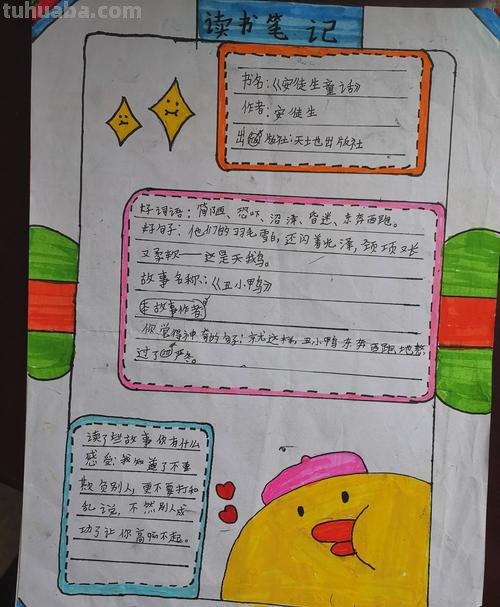 tuhuaba.com
读书笔记
书名:《安徒生童话》
作者:安徒生
出版社:天土也出版社
好词语:简陋、恐吓、沼泽、昏迷、东奔西跑。
好句子:他们的羽毛雪白,还闪着光泽,颈项又长
又柔软——这是天鹅。
故事名称:《丑小鸭》
故事作者
你觉得神奇的句子:就这样,丑小鸭东奔西跑地熬
过了严冬。
读了些故事你有什么
感受:我知道了不要
欺负别人,更不要打和
乱说,不然别人成
功了让你高 不起。